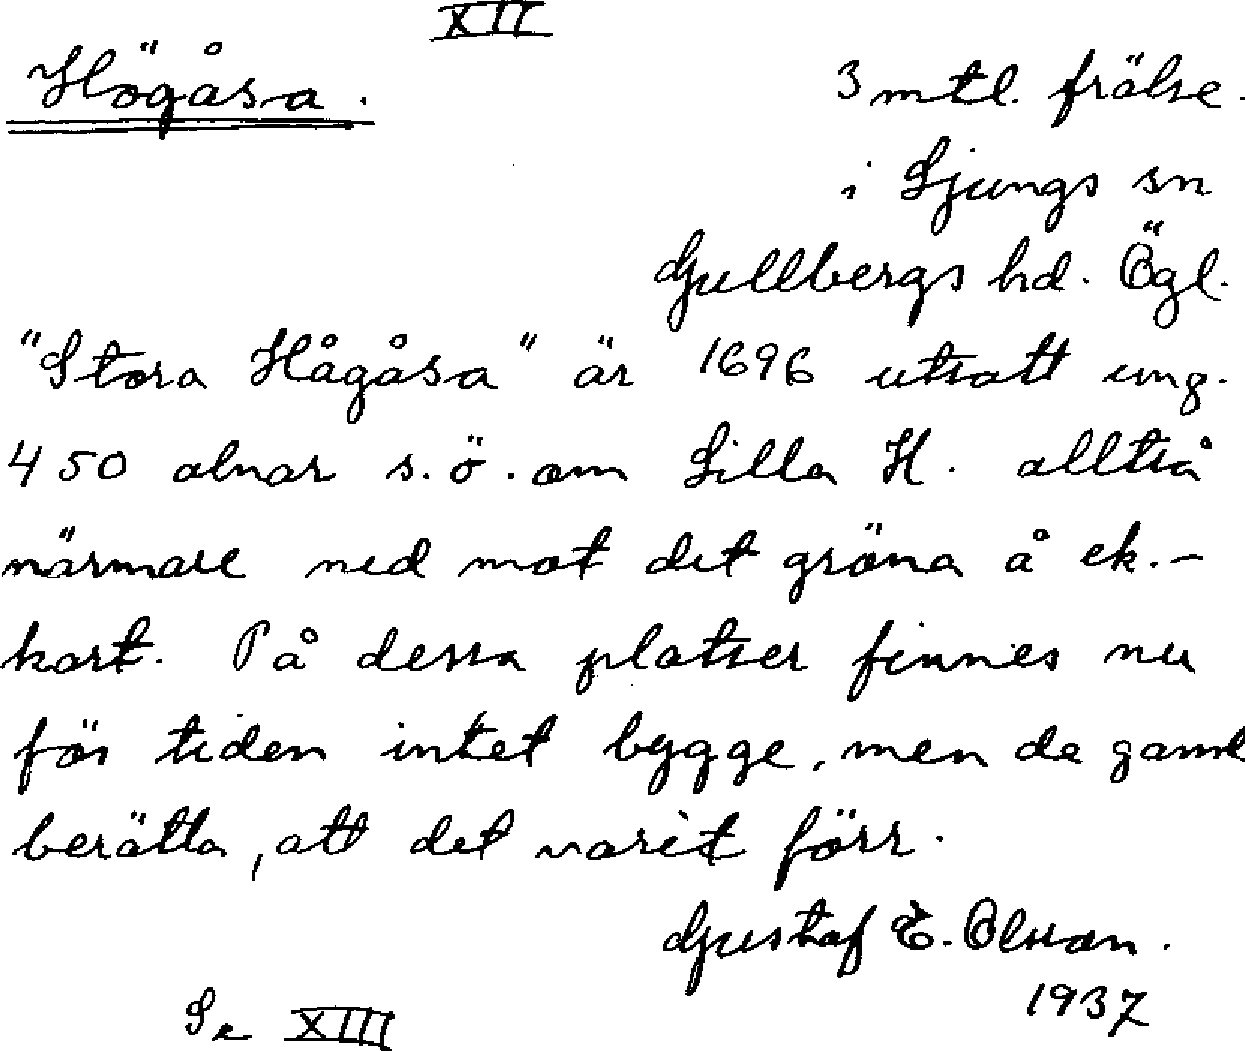 XII
Högåsa.
3 mtl. frälse.
i Ljungs sn
Gullbergs hd. Ögl.
"Stora Hågåsa" är 1696 utsatt ung.
450 alnar s.ö. om Lilla H. alltså
närmare ned mot det gröna å ek.-
kart. På dessa platser finnes nu
för tiden intet bygge, men de gaml
berätta, att det varit förr.
Gustaf E. Olsson.
1937
Se XIII